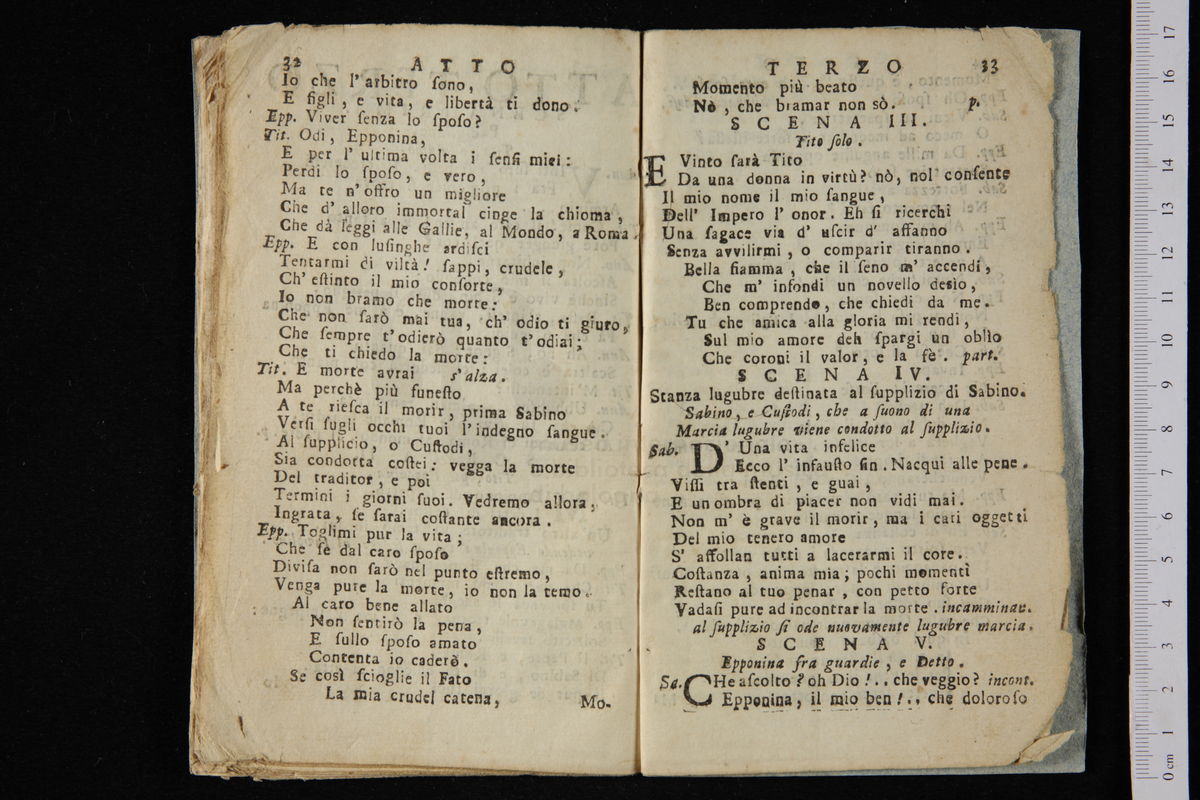 32 ATTO
Io che l'arbitro ſono,
E figli, e vita, e libertà ti dono.
Epp. Viver ſenza lo ſpoſo?
Tit. Odi, Epponina,
E per l' ultima volta i ſenſi miei:
Perdi lo ſpoſo, e vero,
Ma te n'offro un migliore
Che d' alloro immortal cinge la chioma,
Che dà leggi alle Gallie, al Mondo, a Roma.
Epp. E con luſinghe ardiſci
Tentarmi di viltà! ſappi, crudele,
Ch' eſtinto il mio conſorte,
Io non bramo che morte:
Che non ſarò mai tua, ch' odio ti giuro,
Che ſempre t'odierò quanto t'odiai;
Che ti chiedo la morte:
Tit. E morte avrai s'alza.
Ma perchè più funeſto
A te rieſca il morir, prima Sabino
Verſi ſugli occhi tuoi l'indegno ſangue.
Al ſupplicio, o Cuſtodi,
Sia condotta coſtei: vegga la morte
Del traditor, e poi
Termini i giorni ſuoi. Vedremo allora,
Ingrata, ſe ſarai coſtante ancora.
Epp. Toglimi pur la vita;
Che ſe dal caro ſpoſo
Diviſa non ſarò nel punto eſtremo,
Venga pure la morte, io non la temo.
Al caro bene allato
Non ſentirò la pena,
E ſullo ſpoſo amato
Contenta io caderò.
Se così ſcioglie il Fato
La mia crudel catena,
Mo-
TERZO 33
Momento più beato
Nò, che bramar non sò. p.
SCENA III.
Tito ſolo.
E Vinto ſarà Tito
Da una donna in virtù? nò, nol conſente
Il mio nome il mio ſangue,
Dell' Impero l' onor. Eh ſi ricerchi
Una ſagace via d' uſcir d' affanno
Senza avvilirmi, o comparir tiranno.
Bella fiamma, che il ſeno m' accendi,
Che m' infondi un novello desìo,
Ben comprendo, che chiedi da me.
Tu che amica alla gloria mi rendi,
Sul mio amore deh ſpargi un oblìo
Che coroni il valor, e la fè. part.
SCENA IV.
Stanza lugubre deſtinata al ſupplizio di Sabino.
Sabino, e Cuſtodi, che a ſuono di una
Marcia lugubre viene condotto al ſupplizio.
Sab. D' Una vita infelice
Ecco l' infauſto fin. Nacqui alle pene.
Viſſi tra ſtenti, e guai,
E un ombra di piacer non vidi mai.
Non m' è grave il morir, ma i cari oggetti
Del mio tenero amore
S' affollan tutti a lacerarmi il core.
Coſtanza, anima mia; pochi momenti
Reſtano al tuo penar, con petto forte
Vadaſi pure ad incontrar la morte. incamminan.
al ſupplizio ſi ode nuovamente lugubre marcia.
SCENA V.
Epponina fra guardie, e Detto.
Sa. CHe aſcolto? oh Dio!.. che veggio? incont.
Epponina, il mio ben!.. che doloroſo